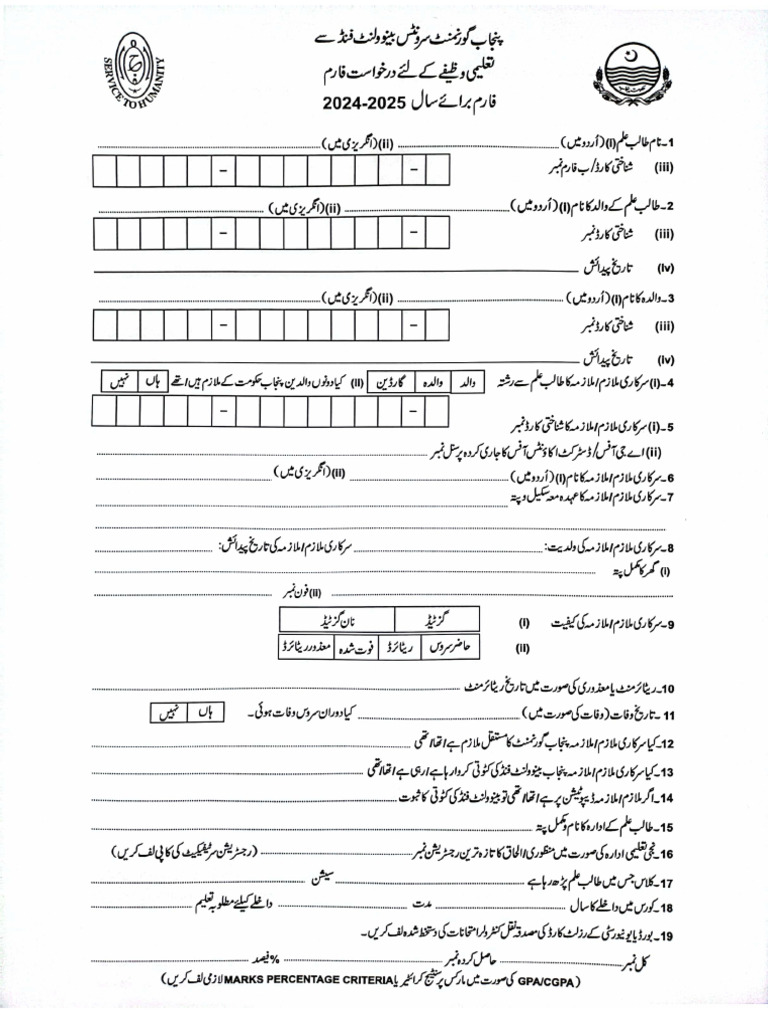 پنجاب گورنمنٹ سرونٹس بینوولنٹ فنڈ سے
تعلیمی وظیفے کے لئے درخواست فارم
فارم برائے سال 2024-2025
SERVICE TO HUMANITY
1۔ نام طالب علم (i) (اُردو میں) (ii) (انگریزی میں)
(iii) شناختی کارڈ/ب فارم نمبر
2۔ طالب علم کے والد کا نام (i) (اُردو میں) (ii) (انگریزی میں)
(iii) شناختی کارڈ نمبر
(iv) تاریخ پیدائش
3۔ والدہ کا نام (i) (اُردو میں) (ii) (انگریزی میں)
(iii) شناختی کارڈ نمبر
(iv) تاریخ پیدائش
4۔ (i) سرکاری ملازم/ملازمہ کا طالب علم سے رشتہ والد والدہ گارڈین (ii) کیا دونوں والدین پنجاب حکومت کے ملازم ہیں/تھے ہاں نہیں
5۔ (i) سرکاری ملازم/ملازمہ کا شناختی کارڈ نمبر
(ii) اے جی آفس/ڈسٹرکٹ اکاؤنٹس آفس کا جاری کردہ پرسنل نمبر
6۔ سرکاری ملازم/ملازمہ کا نام (i) (اُردو میں) (ii) (انگریزی میں)
7۔ سرکاری ملازم/ملازمہ کا عہدہ معہ سکیل و پتہ
8۔ سرکاری ملازم/ملازمہ کی ولدیت: سرکاری ملازم/ملازمہ کی تاریخ پیدائش:
(i) گھر کا مکمل پتہ
(ii) فون نمبر
9۔ سرکاری ملازم/ملازمہ کی کیفیت (i) گزٹیڈ نان گزٹیڈ
(ii) حاضر سروس ریٹائرڈ فوت شدہ معذور ریٹائرڈ
10۔ ریٹائرمنٹ یا معذوری کی صورت میں تاریخ ریٹائرمنٹ
11۔ تاریخ وفات (وفات کی صورت میں) کیا دوران سروس وفات ہوئی۔ ہاں نہیں
12۔ کیا سرکاری ملازم/ملازمہ پنجاب گورنمنٹ کا مستقل ملازم ہے/تھا/تھی
13۔ کیا سرکاری ملازم/ملازمہ پنجاب بینوولنٹ فنڈ کی کٹوتی کروا رہا ہے/رہی ہے/تھا/تھی
14۔ اگر ملازم/ملازمہ ڈیپوٹیشن پر ہے/تھا/تھی تو بینوولنٹ فنڈ کی کٹوتی کا ثبوت
15۔ طالب علم کے ادارہ کا نام و مکمل پتہ
16۔ نجی تعلیمی ادارہ کی صورت میں منظوری/الحاق کا تازہ ترین رجسٹریشن نمبر (رجسٹریشن سرٹیفکیٹ کی کاپی لف کریں)
17۔ کلاس جس میں طالب علم پڑھ رہا ہے سیشن
18۔ کورس میں داخلے کا سال مدت داخلے کیلئے مطلوبہ تعلیم
19۔ بورڈ یا یونیورسٹی کے رزلٹ کارڈ کی مصدقہ نقل کنٹرولر امتحانات کی دستخط شدہ لف کریں۔
کل نمبر حاصل کردہ نمبر % فیصد
(GPA/CGPA کی صورت میں مارکس پرسنٹیج کرائٹیریا MARKS PERCENTAGE CRITERIA لازمی لف کریں)